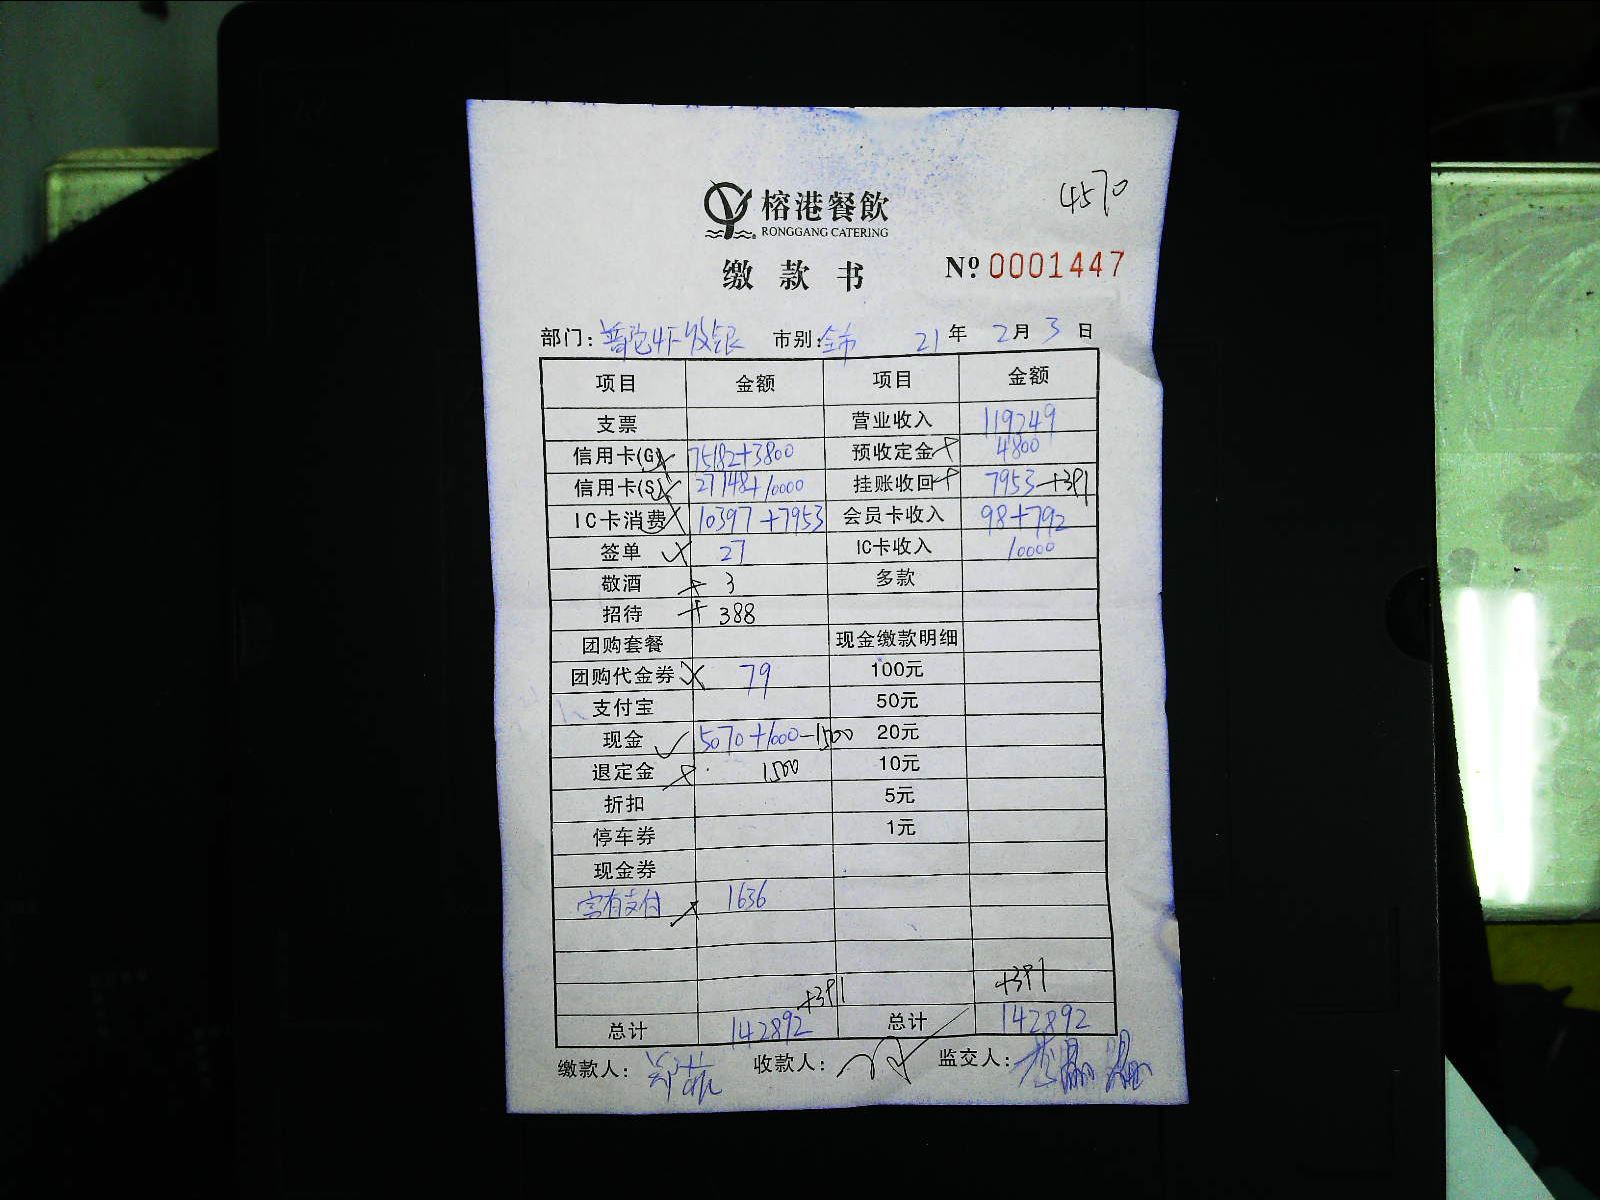 4570
榕港餐飲
RONGGANG CATERING
缴款书 Nº 0001447
部门: 普陀 收银 市别: 全市 21年 2月 3日
项目 金额 项目 金额
支票 营业收入 119249
信用卡(G) 75182+3800 预收定金 4800
信用卡(S) 27148+10000 挂账收回 7953+391
IC卡消费 10397+7953 会员卡收入 98+792
签单 27 IC卡收入 10000
敬酒 3 多款
招待 388
团购套餐 现金缴款明细
团购代金券 79 100元
支付宝 50元
现金 5070+1000-1500 20元
退定金 1500 10元
折扣 5元
停车券 1元
现金券
富有支付 1636
+391 +391
总计 142892 总计 142892
缴款人: 收款人: 监交人: